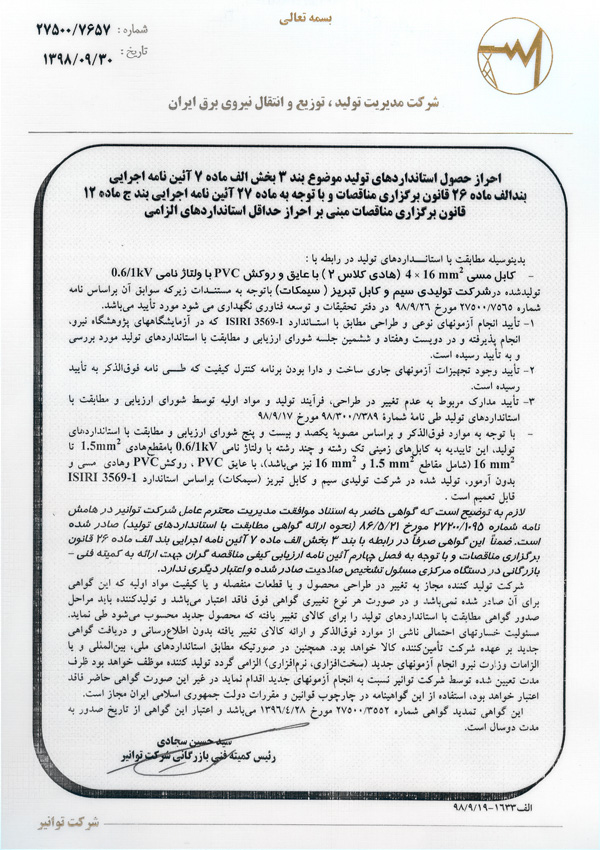 بسمه تعالی
شماره : ۲۷۵۰۰/۷۶۵۷
تاریخ : ۱۳۹۸/۰۹/۳۰
شرکت مدیریت تولید ، توزیع و انتقال نیروی برق ایران
احراز حصول استانداردهای تولید موضوع بند ۳ بخش الف ماده ۷ آئین نامه اجرایی
بندالف ماده ۲۶ قانون برگزاری مناقصات و با توجه به ماده ۲۷ آئین نامه اجرایی بند ج ماده ۱۲
قانون برگزاری مناقصات مبنی بر احراز حداقل استانداردهای الزامی
بدینوسیله مطابقت با استانداردهای تولید در رابطه با :
- کابل مسی 4 × 16 mm² (هادی کلاس ۲ ) با عایق و روکش PVC با ولتاژ نامی 0.6/1kV
تولیدشده در شرکت تولیدی سیم و کابل تبریز ( سیمکات) باتوجه به مستندات زیرکه سوابق آن براساس نامه
شماره ۲۷۵۰۰/۷۵۶۵ مورخ ۹۸/۹/۲۶ در دفتر تحقیقات و توسعه فناوری نگهداری می شود مورد تأیید می‌باشد.
۱- تأیید انجام آزمونهای نوعی و طراحی مطابق با استاندارد ISIRI 3569-1 که در آزمایشگاههای پژوهشگاه نیرو،
انجام پذیرفته و در دویست وهفتاد و ششمین جلسه شورای ارزیابی و مطابقت با استانداردهای تولید مورد بررسی
و به تأیید رسیده است.
۲- تأیید وجود تجهیزات آزمونهای جاری ساخت و دارا بودن برنامه کنترل کیفیت که طی نامه فوق‌الذکر به تأیید
رسیده است.
۳- تأیید مدارک مربوط به عدم تغییر در طراحی، فرآیند تولید و مواد اولیه توسط شورای ارزیابی و مطابقت با
استانداردهای تولید طی نامۀ شمارۀ ۹۸/۳۰۰/۷۳۸۹ مورخ ۹۸/۹/۱۷
- با توجه به موارد فوق‌الذکر و براساس مصوبۀ یکصد و بیست و پنج شورای ارزیابی و مطابقت با استانداردهای
تولید، این تاییدیه به کابل‌های زمینی تک رشته و چند رشته با ولتاژ نامی 0.6/1kV بامقطع‌هادی 1.5mm² تا
16 mm² (شامل مقاطع 1.5 mm² و 16 mm² نیز می‌باشد)، با عایق PVC ، روکش PVC وهادی مسی و
بدون آرمور، تولید شده در شرکت تولیدی سیم و کابل تبریز (سیمکات) براساس استاندارد ISIRI 3569-1
قابل تعمیم است .
لازم به توضیح است که گواهی حاضر به استناد موافقت مدیریت محترم عامل شرکت توانیر در هامش
نامه شماره ۲۷۲۰۰/۱۰۹۵ مورخ ۸۶/۵/۲۱ (نحوه ارائه گواهی مطابقت با استانداردهای تولید) صادر شده
است. ضمناً این گواهی صرفاً در رابطه با بند ۳ بخش الف ماده ۷ آئین نامه اجرایی بند الف ماده ۲۶ قانون
برگزاری مناقصات و با توجه به فصل چهارم آئین نامه ارزیابی کیفی مناقصه گران جهت ارائه به کمیته فنی –
بازرگانی در دستگاه مرکزی مسئول تشخیص صلاحیت صادر شده و اعتبار دیگری ندارد.
شرکت تولید کننده مجاز به تغییر در طراحی محصول و یا قطعات منفصله و یا کیفیت مواد اولیه که این گواهی
برای آن صادر شده نمی‌باشد و در صورت هر نوع تغییری گواهی فوق فاقد اعتبار می‌باشد و تولیدکننده باید مراحل
صدور گواهی مطابقت با استانداردهای تولید را برای کالای تغییر یافته که محصول جدید محسوب می‌شود طی نماید.
مسئولیت خسارتهای احتمالی ناشی از موارد فوق‌الذکر و ارائه کالای تغییر یافته بدون اطلاع‌رسانی و دریافت گواهی
جدید بر عهده شرکت تأمین‌کننده کالا خواهد بود. همچنین در صورتیکه مطابق استانداردهای ملی، بین‌المللی و یا
الزامات وزارت نیرو انجام آزمونهای جدید (سخت‌افزاری، نرم‌افزاری) الزامی گردد تولید کننده موظف خواهد بود ظرف
مدت تعیین شده توسط شرکت توانیر نسبت به انجام آزمونهای جدید اقدام نماید در غیر این صورت گواهی حاضر فاقد
اعتبار خواهد بود، استفاده از این گواهینامه در چارچوب قوانین و مقررات دولت جمهوری اسلامی ایران مجاز است.
این گواهی تمدید گواهی شماره ۲۷۵۰۰/۳۵۵۲ مورخ ۱۳۹۶/۴/۲۸ می‌باشد و اعتبار این گواهی از تاریخ صدور به
مدت دوسال است.
سید حسین سجادی
رئیس کمیته فنی بازرگانی شرکت توانیر
الف۱۶۳۳-۹۸/۹/۱۹
شرکت توانیر